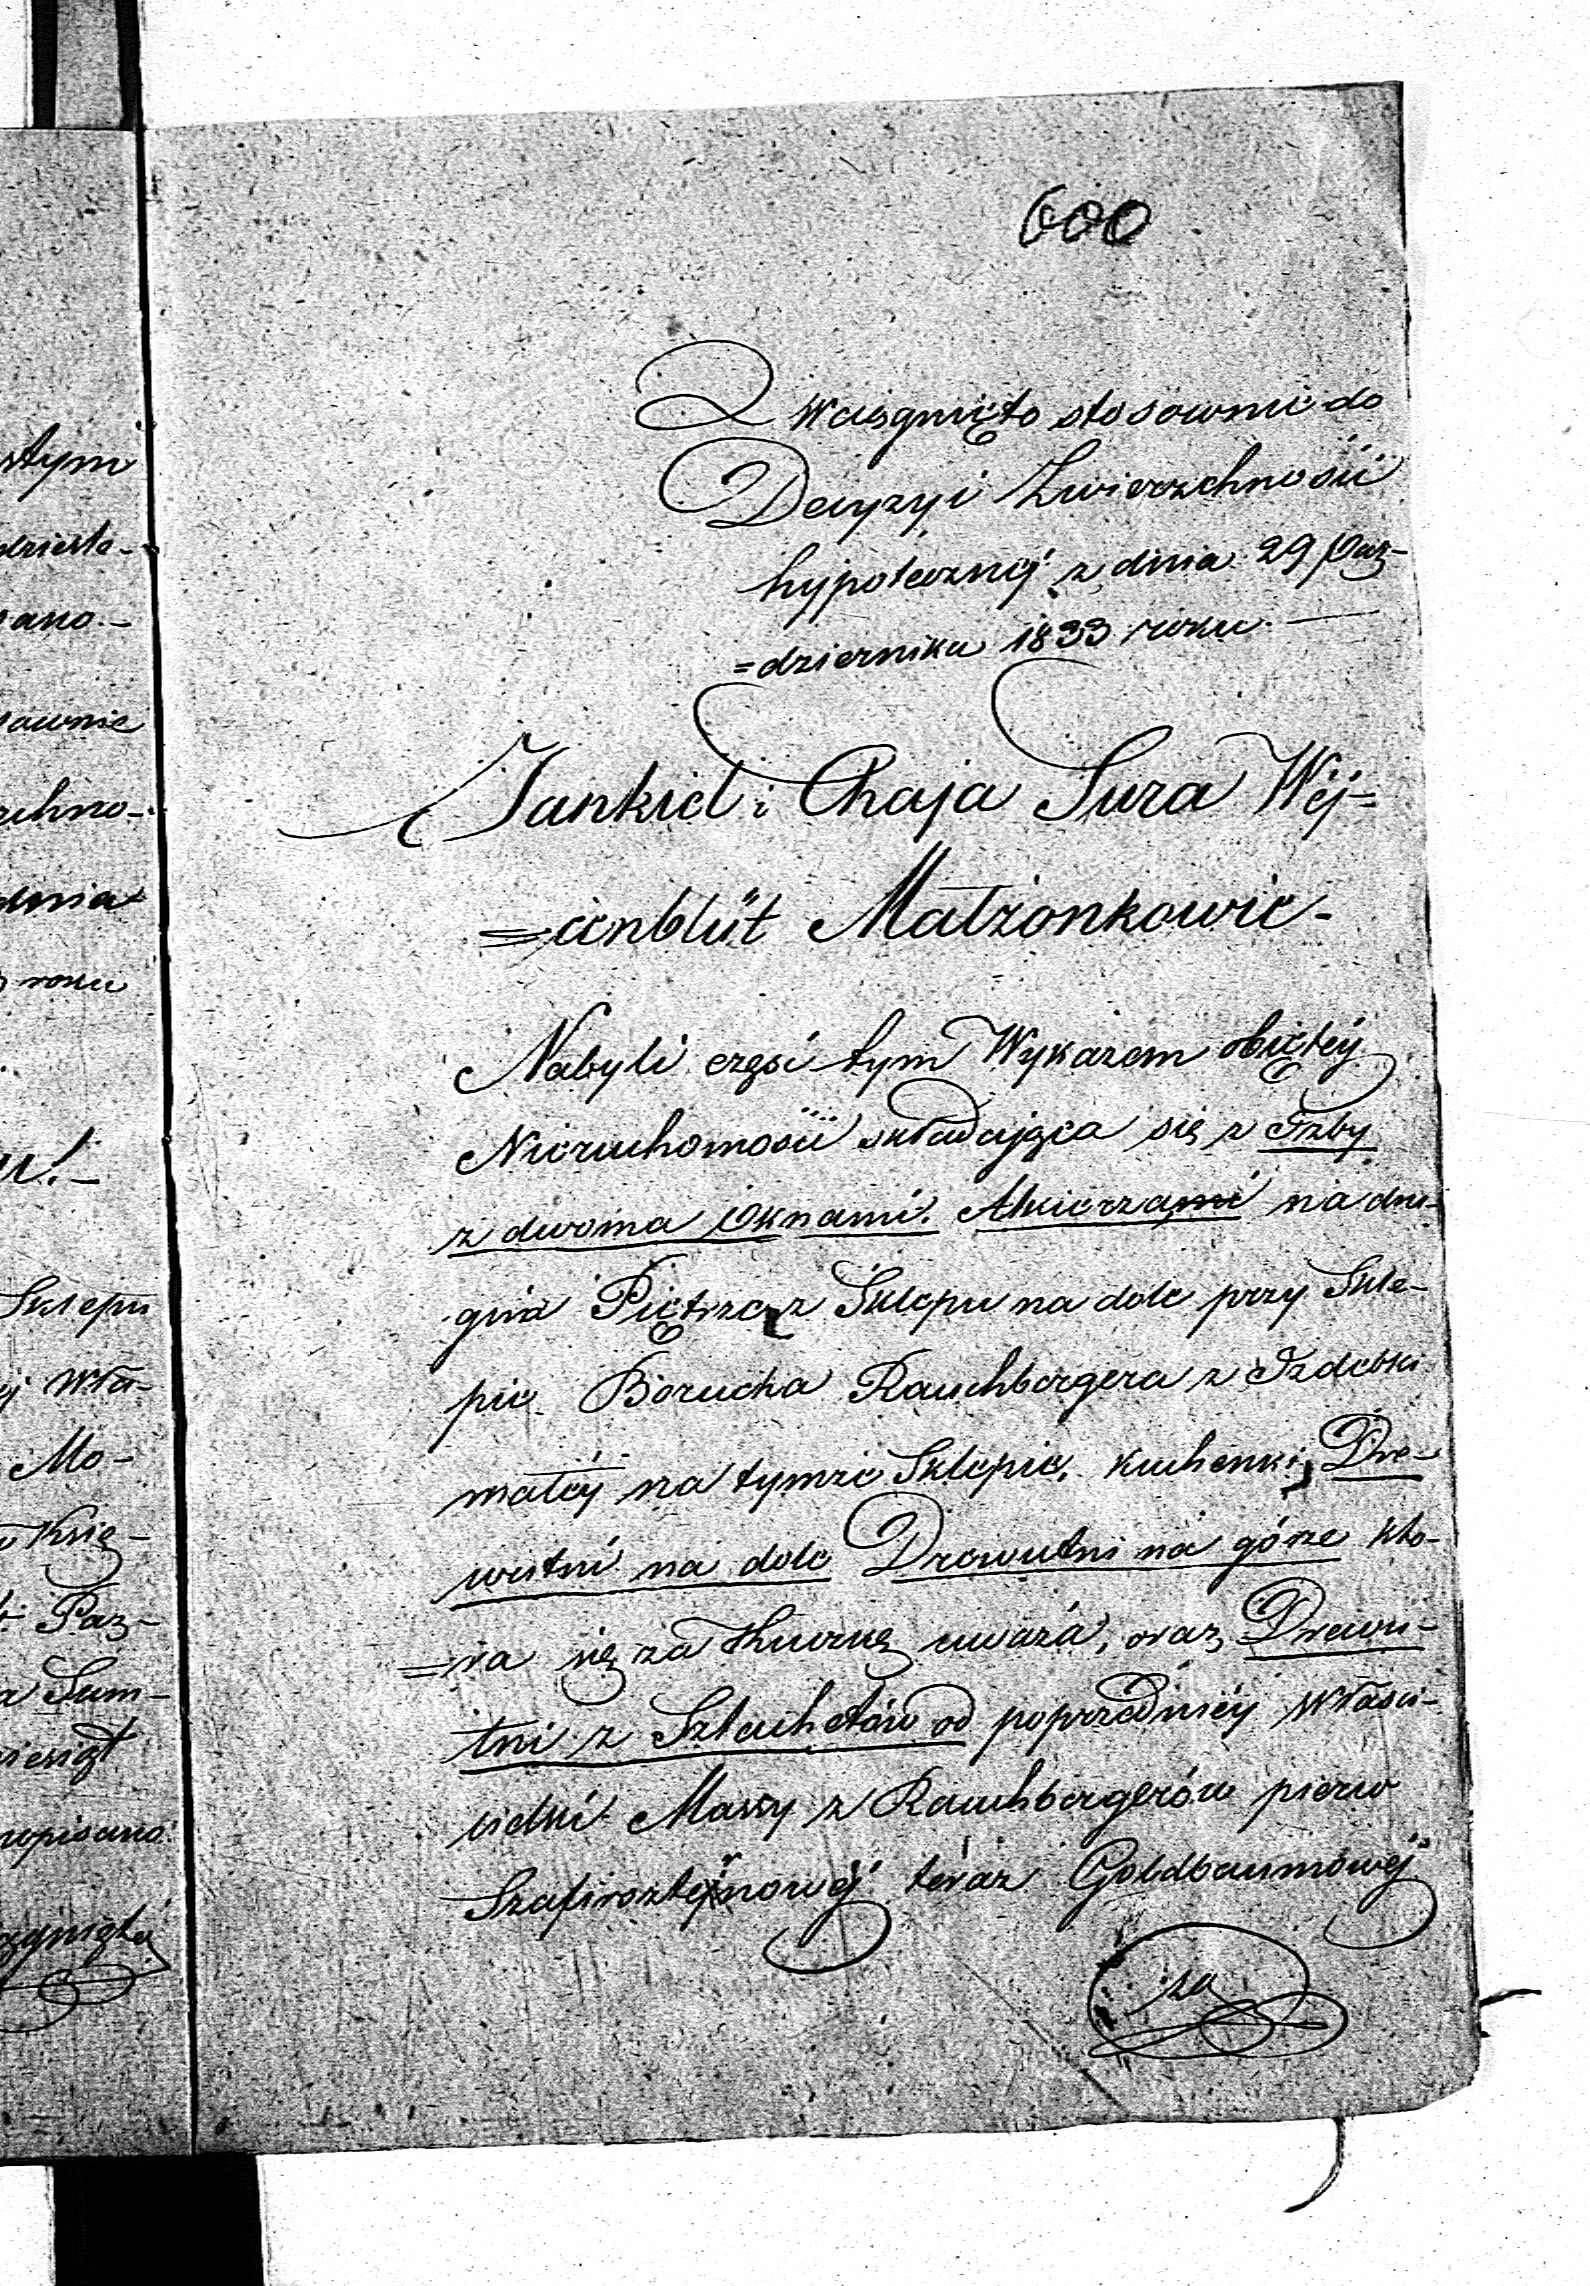 600
Wciągnięto stosownie do
Decyzyi Zwierzchności
hypotecznéj z dnia 29 Paz-
=dziernika 1833 roku. —
Jankiel i Chaja Sura Wej-
=ienblüt Małżonkowie -
Nabyli część tym Wykazem obiętéy
Nieruchomości składającą się z Izby
z dwoma Oknami. Alkierza na dru-
giém Piętrze z Sklepu na dole przy Skle-
pie Borucha Rauchbergera z Izdebki
małéy na tymże Sklepie, kuchenki, Dre-
wutni na dole Drewutni na górze któ-
=ra się za uważa, oraz Drewu-
tni z Sztachetów od poprzedniéy Właści-
cielki Massy z Rauchbergerów pierw
Szafirsztejnowéj teraz Goldbaumowéj
za
stym
dzieste-
ano.-
sownie
rchno-
dnia
roku
u!-
Sklepu
j Wła-
Mo-
Księ-
Paz-
a Sum-
iesiąt
wpisano